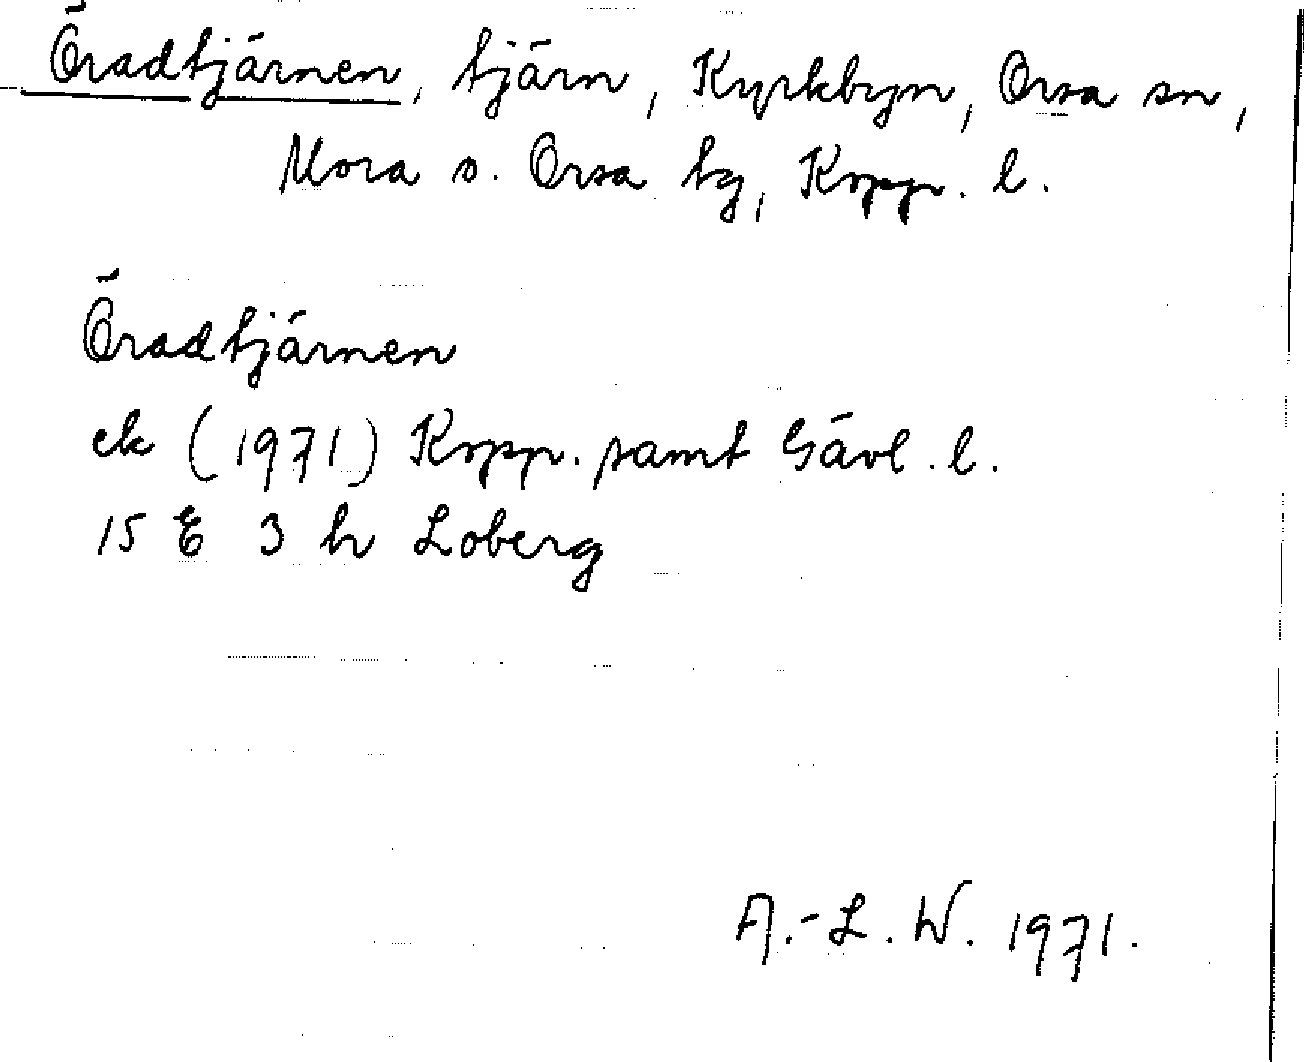 Öradtjärnen, tjärn, Kyrkbyn, Orsa sn,
Mora o. Orsa tg, Kopp. l.
Öradtjärnen
ek (1971) Kopp. samt Gävl. l.
15 E 3 h Loberg
A.-L. W. 1971.